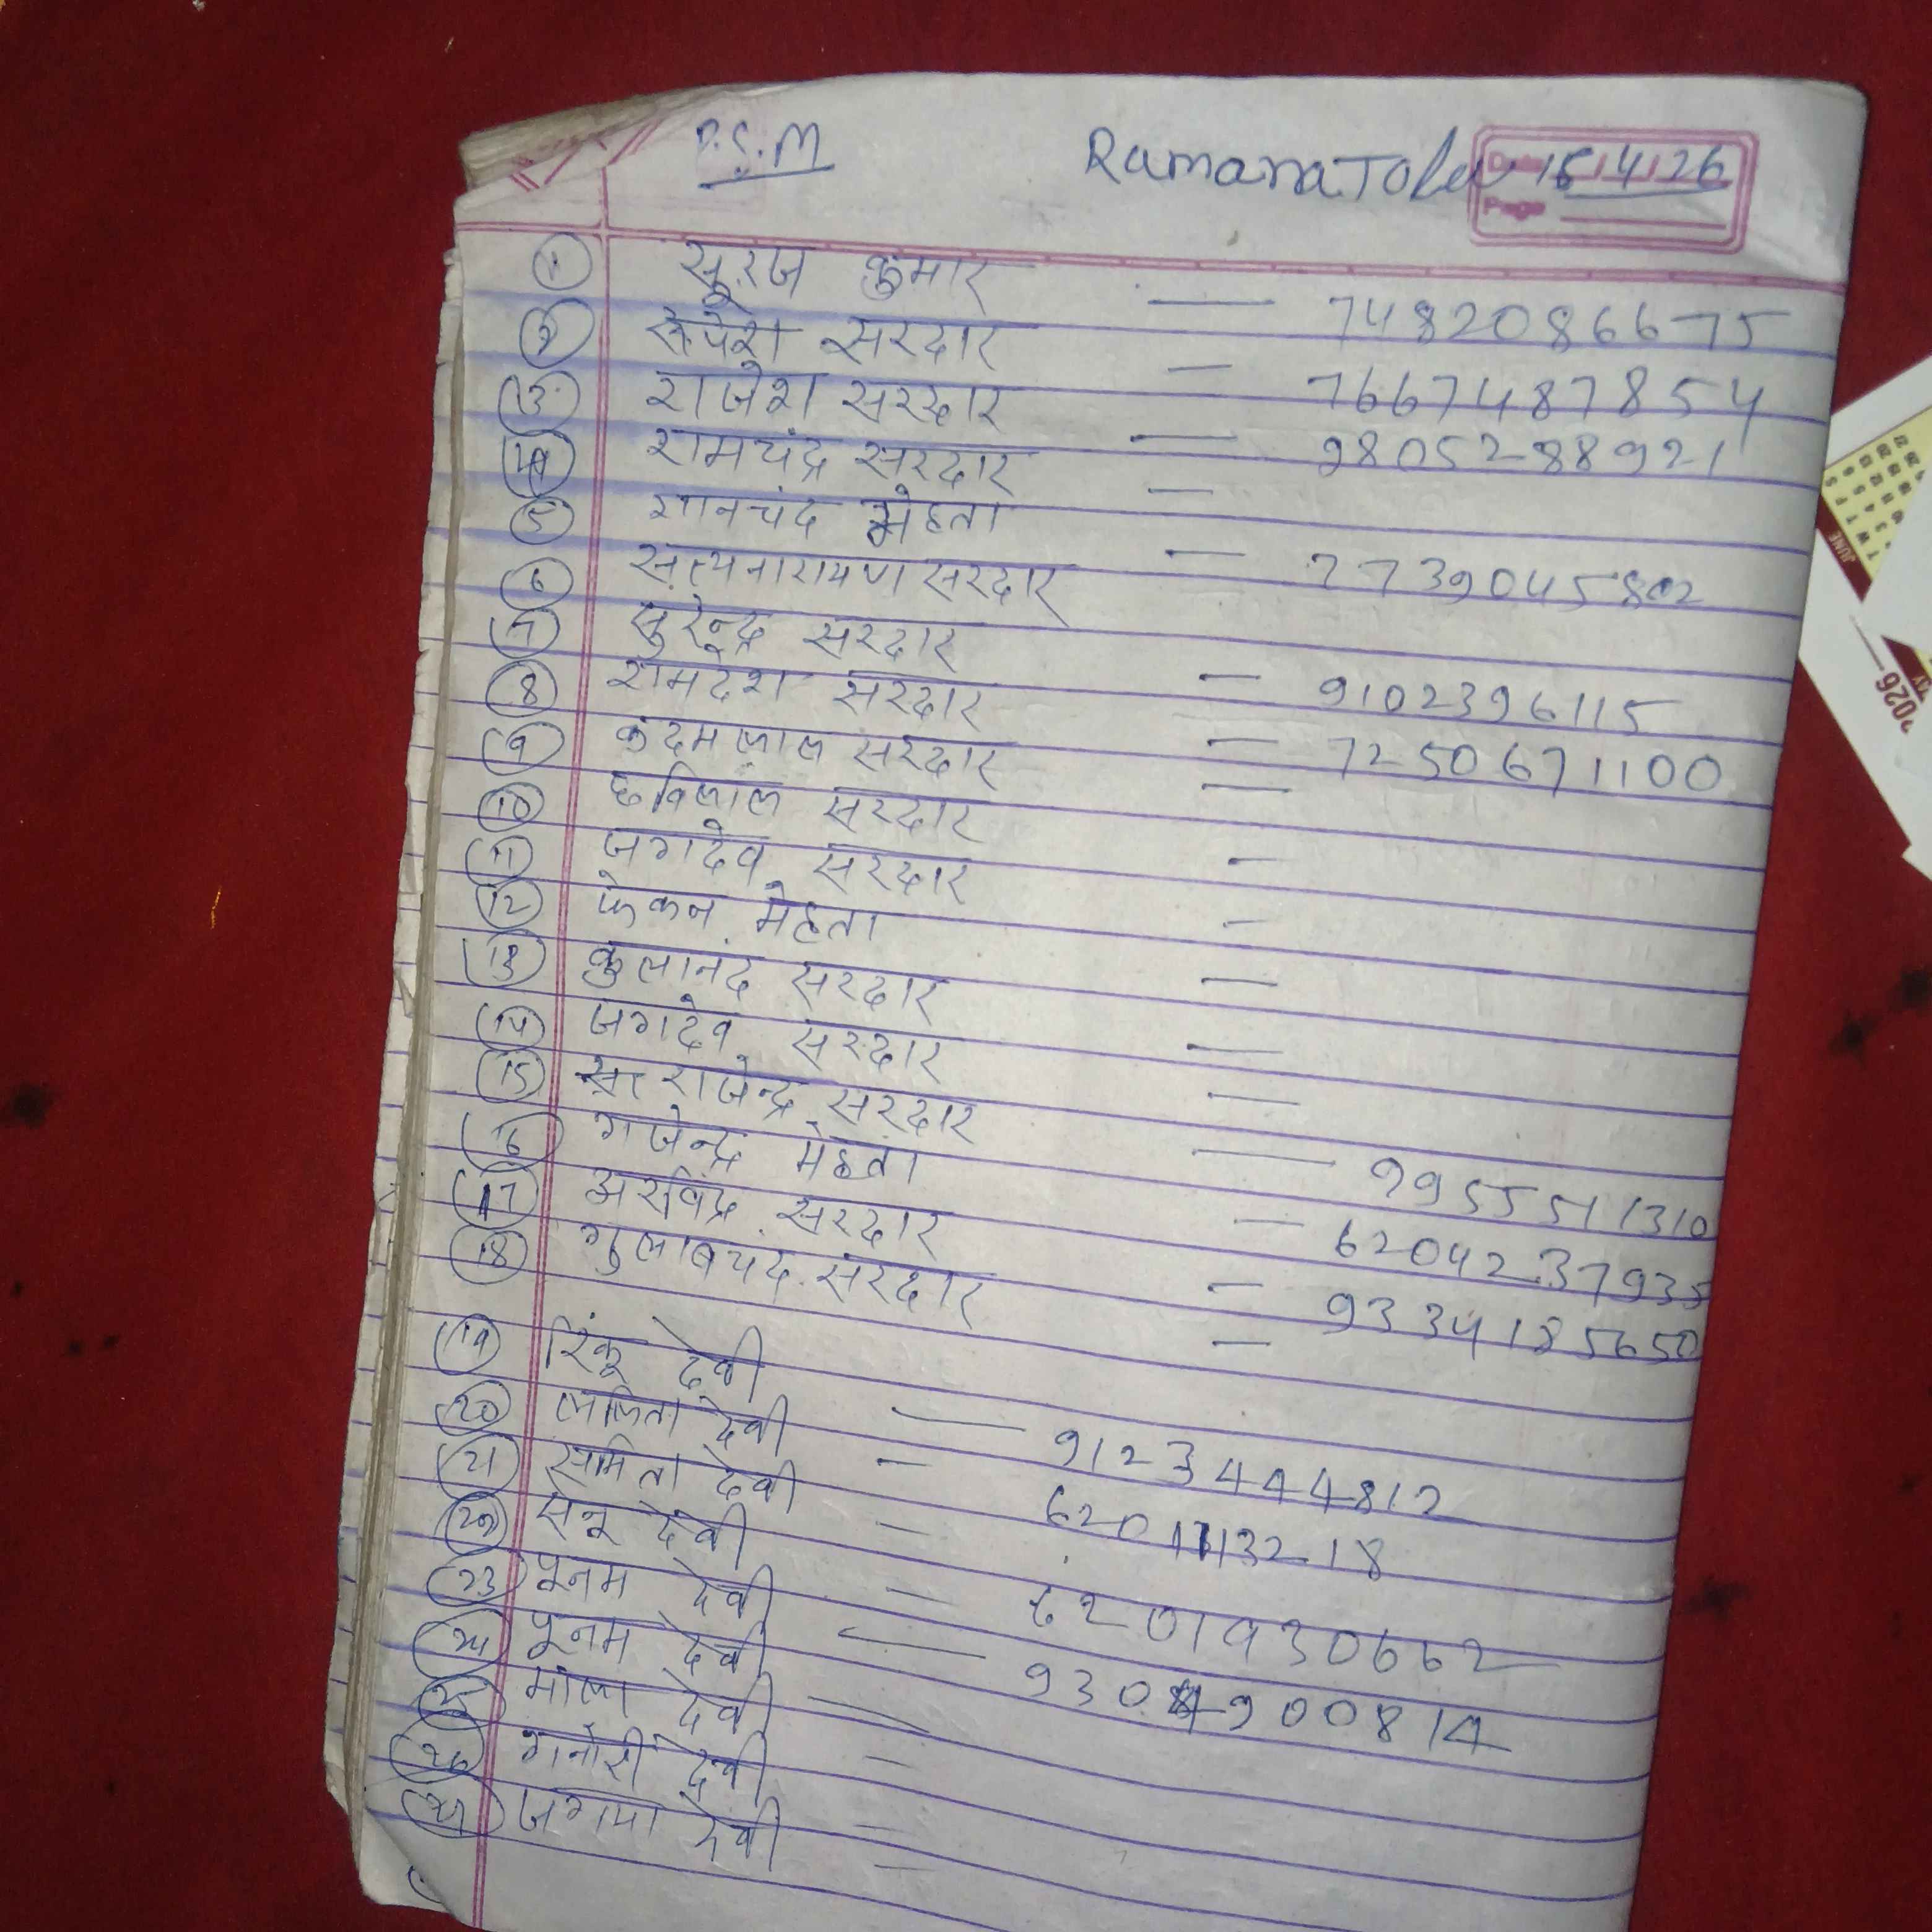 P.S.M Ramana Tola Date 15/4/26
Page
1 सूरज कुमार — 7482086675
2 रूपेश सरदार — 7667487854
3 राजेश सरदार — 9805288921
4 रामचंद्र सरदार —
5 ज्ञानचंद मेहता — 7739045802
6 सत्यनारायण सरदार
7 सुरेन्द्र सरदार — 9102396115
8 रामदेश सरदार — 7250671100
9 कदमलाल सरदार —
10 छविलाल सरदार —
11 जगदेव सरदार —
12 फेकन मेहता —
13 कुलानंद सरदार —
14 जगदेव सरदार —
15 राजेन्द्र सरदार — 9955511310
16 गजेन्द्र मेहता — 6204237935
17 अरविंद्र सरदार — 9334185650
18 गुलाबचंद सरदार —
19 रिंकू देवी — 9123444812
20 ललिता देवी — 6201113218
21 समिता देवी — 6201930662
22 सनू देवी — 9304900814
23 पूनम देवी —
24 पूनम देवी —
25 माला देवी —
26 गनोरी देवी —
27 जगया देवी
2026
JUNE